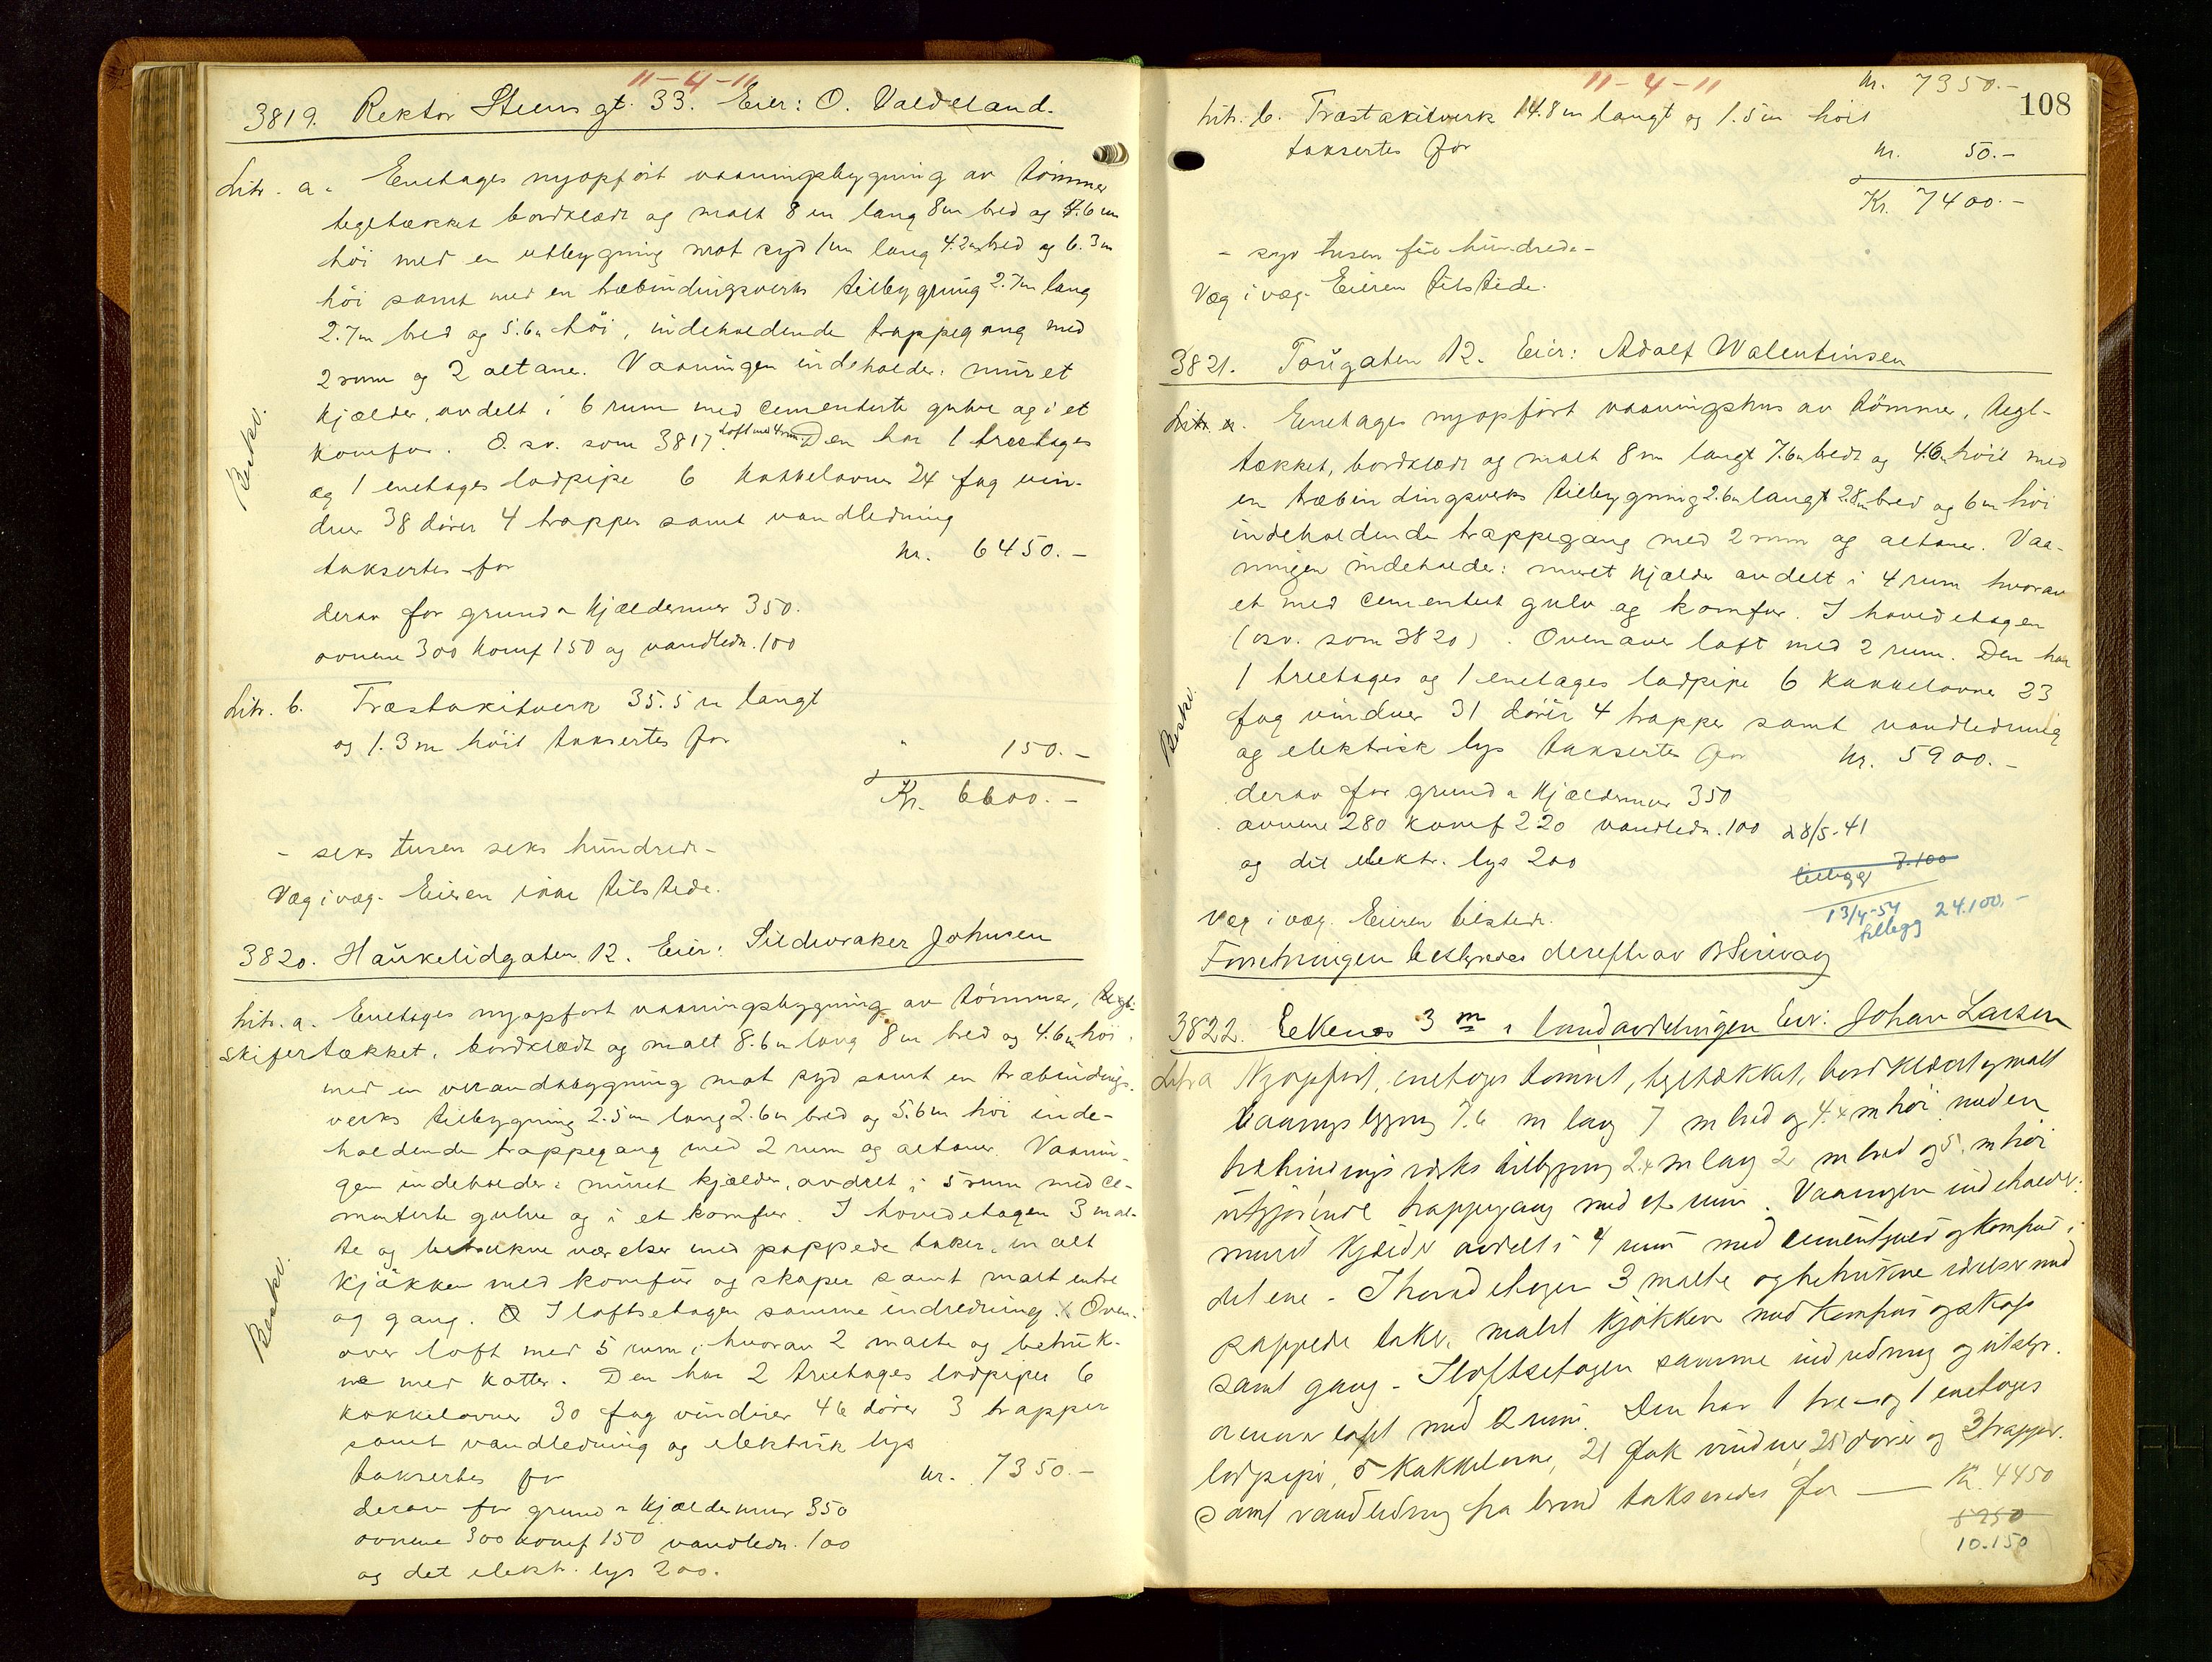 11-4-11
3819. Rektor Steens gt. 33. Eier: O. Valdeland.
Litr. a. Enetages nyopført vaaningsbygning av tømmer
teglstækket bordklædt og malt 8 m lang 8m bred og 4.6 m
høi med en utbygning mot syd 1m lang 4.2m bred og 6.3m
høi samt med en træbindingsverks tilbygning 2.7m lang
2.7m bred og 5.6m høi, indeholdende trappegang med
2 rum og 2 altane. Vaaningen indeholder: muret
kjælder, avdelt i 6 rum med cementerte gulve og i et
komfur. O. sv. som 3817. Loft med 4 rum Den har 1 treetages
og 1 enetages ladpipe 6 kakkelovne 24 fag vin-
duer 38 dører 4 trapper samt vandledning
taksertes for kr. 6450.-
derav for grund- & kjældermur 350.
ovnene 300 komf 150 og vandledn. 100
Beskv.
Litr. b. Træstakitverk 35.5 m langt
og 1.3 m høit taksertes for " 150.-
Kr. 6600.-
- seks tusen seks hundrede -
Væg i væg. Eieren ikke tilstede.
3820. Haukelidgaten 12. Eier: Sildevraker Johnsen
Litr. a. Enetages nyopført vaaningsbygning av tømmer, tegl-
skifertækket, bordklædt og malt 8.6m lang 8m bred og 4.6m høi
med en verandabygning mot syd samt en træbindings-
verks tilbygning 2.5m lang 2.6m bred og 5.6m høi inde-
holdende trappegang med 2 rum og altaner. Vaanin-
gen indeholder: muret kjælder, avdelt i 5 rum med ce-
menterte gulve og i et komfur. I hovedetagen 3 mal-
te og betrukne værelser med pappede taker, en alt
kjøkken med komfur og skaper samt malt entre
og gang. I loftsetagen samme indredning. Oven-
over loft med 5 rum, hvorav 2 malte og betruk-
ne med kotter. Den har 2 treetages ladpiper 6
kakkelovner 30 fag vinduer 46 dører 3 trapper
samt vandledning og elektrisk lys
taksertes for kr. 7350.-
derav for grund & kjældermur 350
ovnene 300 komf 150 vandledn. 100
og det elektr. lys 200.
Beskv.
11-4-11
108
kr. 7350.-
Litr. b. Træstakitverk 14.8m langt og 1.5m høit
taksertes for kr. 50.-
Kr. 7400.-
- syv tusen fire hundrede -
Væg i væg. Eieren tilstede.
3821. Taugaten 12. Eier: Adolf Walentinsen
Litr. a. Enetages nyopført vaaningshus av tømmer, tegl-
tækket, bordklædt og malt 8m langt 7.6m bredt og 4.6m høit med
en træbindingsverks tilbygning 2.6m langt 2.8m bred og 6m høi
indeholdende trappegang med 2 rum og altaner. Vaa-
ningen indeholder: muret kjælder avdelt i 4 rum hvorav
et med cementert gulv og komfur. I hovedetagen
(osv. som 3820). Ovenover loft med 2 rum. Den har
1 treetages og 1 enetages ladpipe 6 kakkelovne 23
fag vinduer 31 dører 4 trapper samt vandledning
og elektrisk lys taksertes for kr. 5900.-
derav for grund & kjældermur 350
ovnene 280 komf 220 vandledn. 100 28/5-41
og det elektr. lys 200 tillegg 7.100
13/4-54 24.100.-
tillegg
Beskv.
Væg i væg. Eieren tilstede.
Forretningen bestyredes derefter av B Sirevaag
3822. Eekenæs 3 m i landavdelingen Eier: Johan Larsen
Litra Nyopført, enetages tømret, teglstækket, bordklædt og malt
vaaningsbygning 7.6 m lang 7 m bred og 4.x m høi med en
træbindingsverks tilbygning 2.x m lang 2 m bred og 5. m høi
utgjørende trappegang med et rum. Vaaningen indeholder:
muret kjælder avdelt i 4 rum med cementgulv og komfur i
det ene. I hovedetagen 3 malte og betrukne værelser med
pappede taker, malet kjøkken med komfur og skap
samt gang. I loftsetagen samme indredning og utstyr.
ovenover loft med 2 rum. Den har 1 tre- og 1 enetages
ladpipe, 5 kakkelovne, 21 fak vinduer, 25 dører og 3 trapper.
samt vandledning fra brønd taksertes for Kr. 4450
5950
10.150